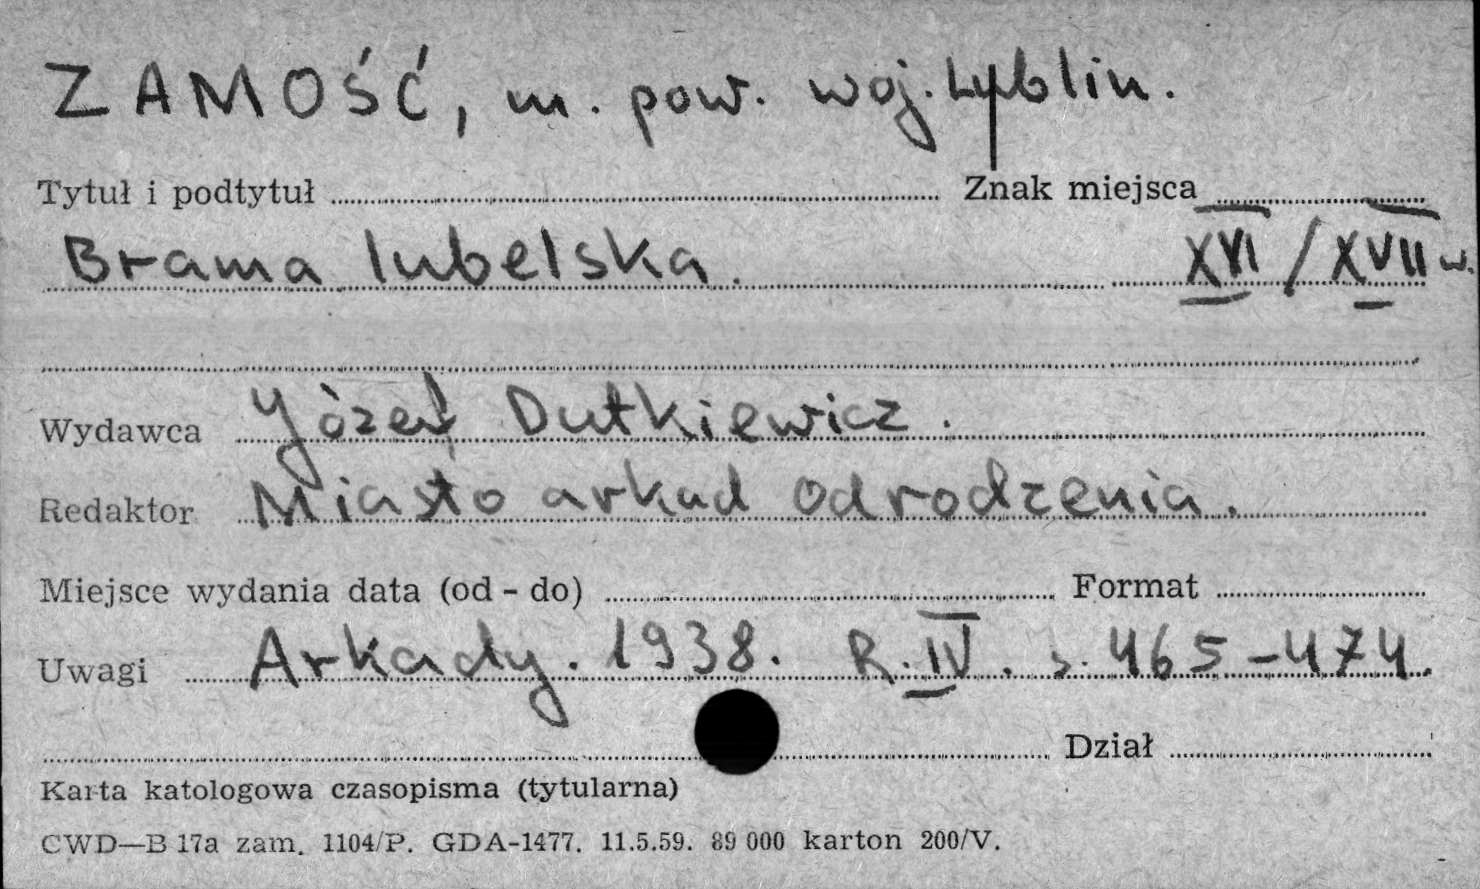 ZAMOŚĆ, m. pow. woj. Lublin.
Tytuł i podtytuł Znak miejsca
Brama lubelska. XVI / XVII w.
Wydawca Józef Dutkiewicz.
Redaktor Miasto arkad odrodzenia.
Miejsce wydania data (od - do) Format
Uwagi Arkady. 1938. R. IV. s. 465-474.
Dział
Karta katologowa czasopisma (tytularna)
CWD—B 17a zam. 1104/P. GDA-1477. 11.5.59. 89 000 karton 200/V.